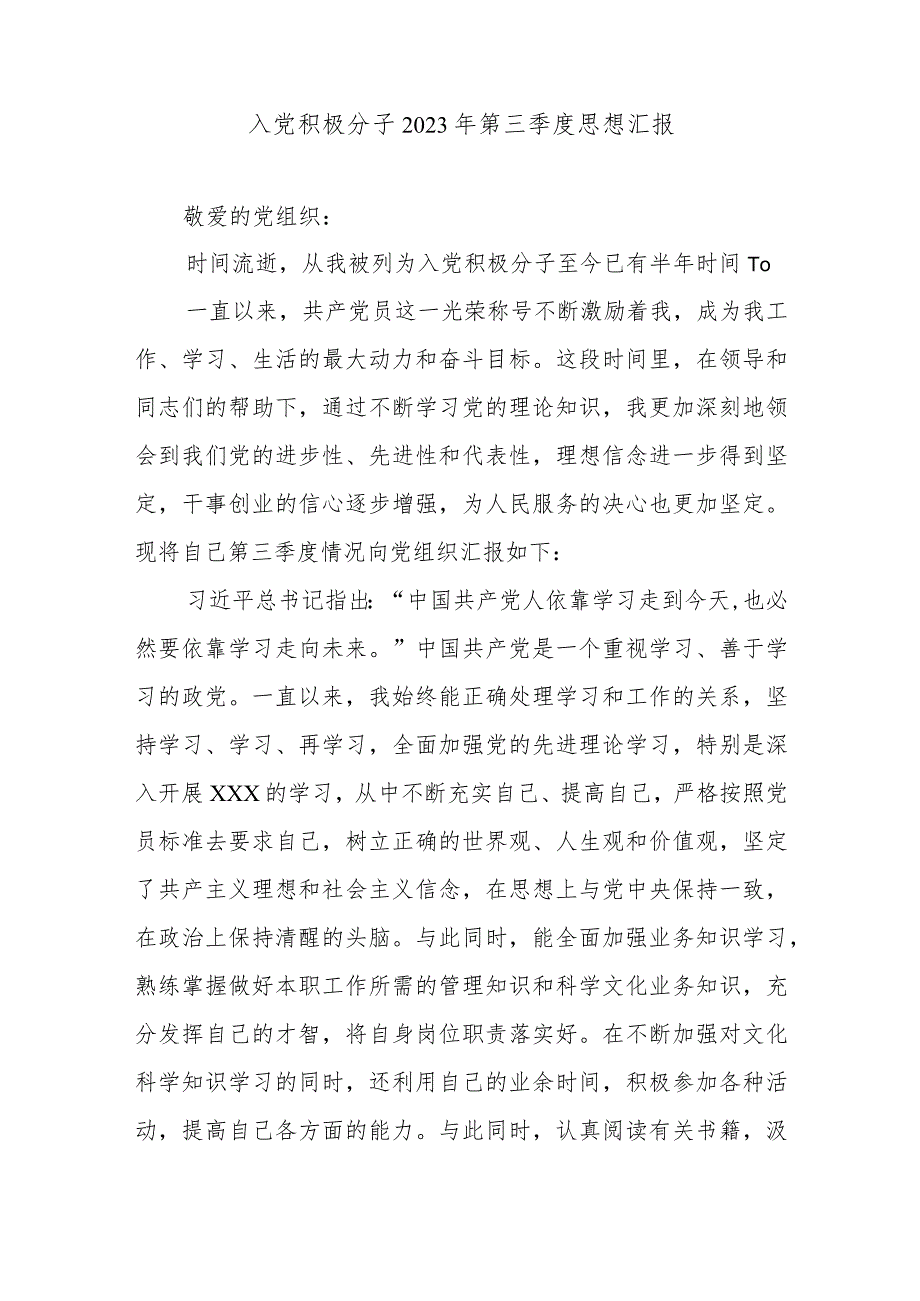 入党积极分子2023年第三季度思想汇报
敬爱的党组织：
时间流逝，从我被列为入党积极分子至今已有半年时间To
一直以来，共产党员这一光荣称号不断激励着我，成为我工
作、学习、生活的最大动力和奋斗目标。这段时间里，在领导和
同志们的帮助下，通过不断学习党的理论知识，我更加深刻地领
会到我们党的进步性、先进性和代表性，理想信念进一步得到坚
定，干事创业的信心逐步增强，为人民服务的决心也更加坚定。
现将自己第三季度情况向党组织汇报如下：
习近平总书记指出：“中国共产党人依靠学习走到今天,也必
然要依靠学习走向未来。”中国共产党是一个重视学习、善于学
习的政党。一直以来，我始终能正确处理学习和工作的关系，坚
持学习、学习、再学习，全面加强党的先进理论学习，特别是深
入开展XXX的学习，从中不断充实自己、提高自己，严格按照党
员标准去要求自己，树立正确的世界观、人生观和价值观，坚定
了共产主义理想和社会主义信念，在思想上与党中央保持一致，
在政治上保持清醒的头脑。与此同时，能全面加强业务知识学习，
熟练掌握做好本职工作所需的管理知识和科学文化业务知识，充
分发挥自己的才智，将自身岗位职责落实好。在不断加强对文化
科学知识学习的同时，还利用自己的业余时间，积极参加各种活
动，提高自己各方面的能力。与此同时，认真阅读有关书籍，汲